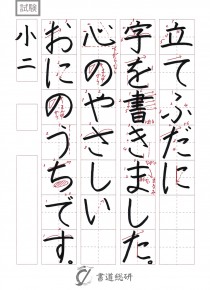 試験
立てふだに
字を書きました。
心のやさしい
おにのうちです。
小二
書道総研